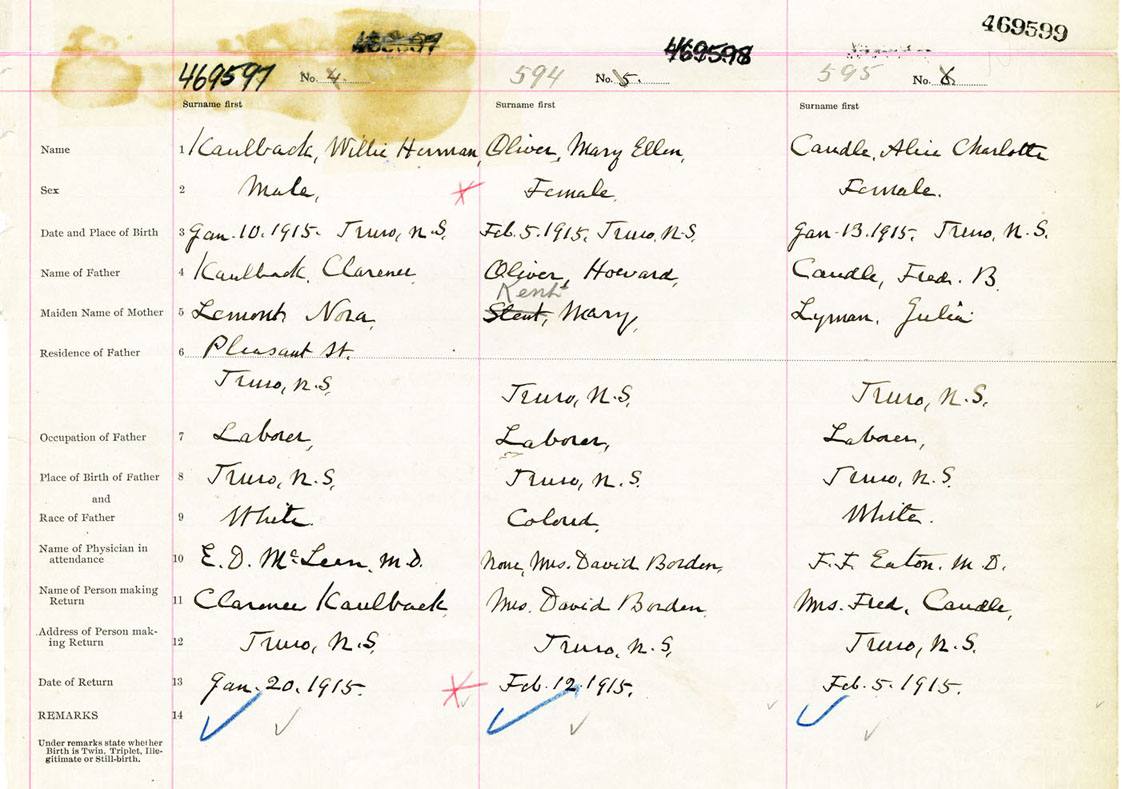 469599
469597 No. 4. 594 469598 No. 5. 595 No. 6.
Surname first Surname first Surname first
Name 1 Kaulback, Willie Herman, Oliver, Mary Ellen, Caudle, Alice Charlotte
Sex 2 Male, Female, Female.
Date and Place of Birth 3 Jan. 10. 1915. Truro, N.S. Feb. 5. 1915, Truro, N.S. Jan. 13. 1915, Truro, N.S.
Name of Father 4 Kaulback, Clarence Oliver, Howard, Caudle, Fred. B.
Kent
Maiden Name of Mother 5 Lemont, Nora, Stent, Mary, Lyman, Julia
Residence of Father 6 Pleasant St.
Truro, N.S, Truro, N.S, Truro, N.S.
Occupation of Father 7 Laborer, Laborer, Laborer,
Place of Birth of Father 8 Truro, N.S, Truro, N.S. Truro, N.S.
and
Race of Father 9 White. Colored, White.
Name of Physician in
attendance 10 E. D. McLeen, M.D. None, Mrs. David Borden, F. F. Eaton. M.D.
Name of Person making
Return 11 Clarence Kaulback, Mrs. David Borden, Mrs. Fred, Caudle,
Address of Person mak-
ing Return 12 Truro, N.S, Truro, N.S, Truro, N.S.
Date of Return 13 Jan. 20. 1915. Feb. 12, 1915. Feb. 5. 1915.
REMARKS 14
Under remarks state whether
Birth is Twin, Triplet, Ille-
gitimate or Still-birth.